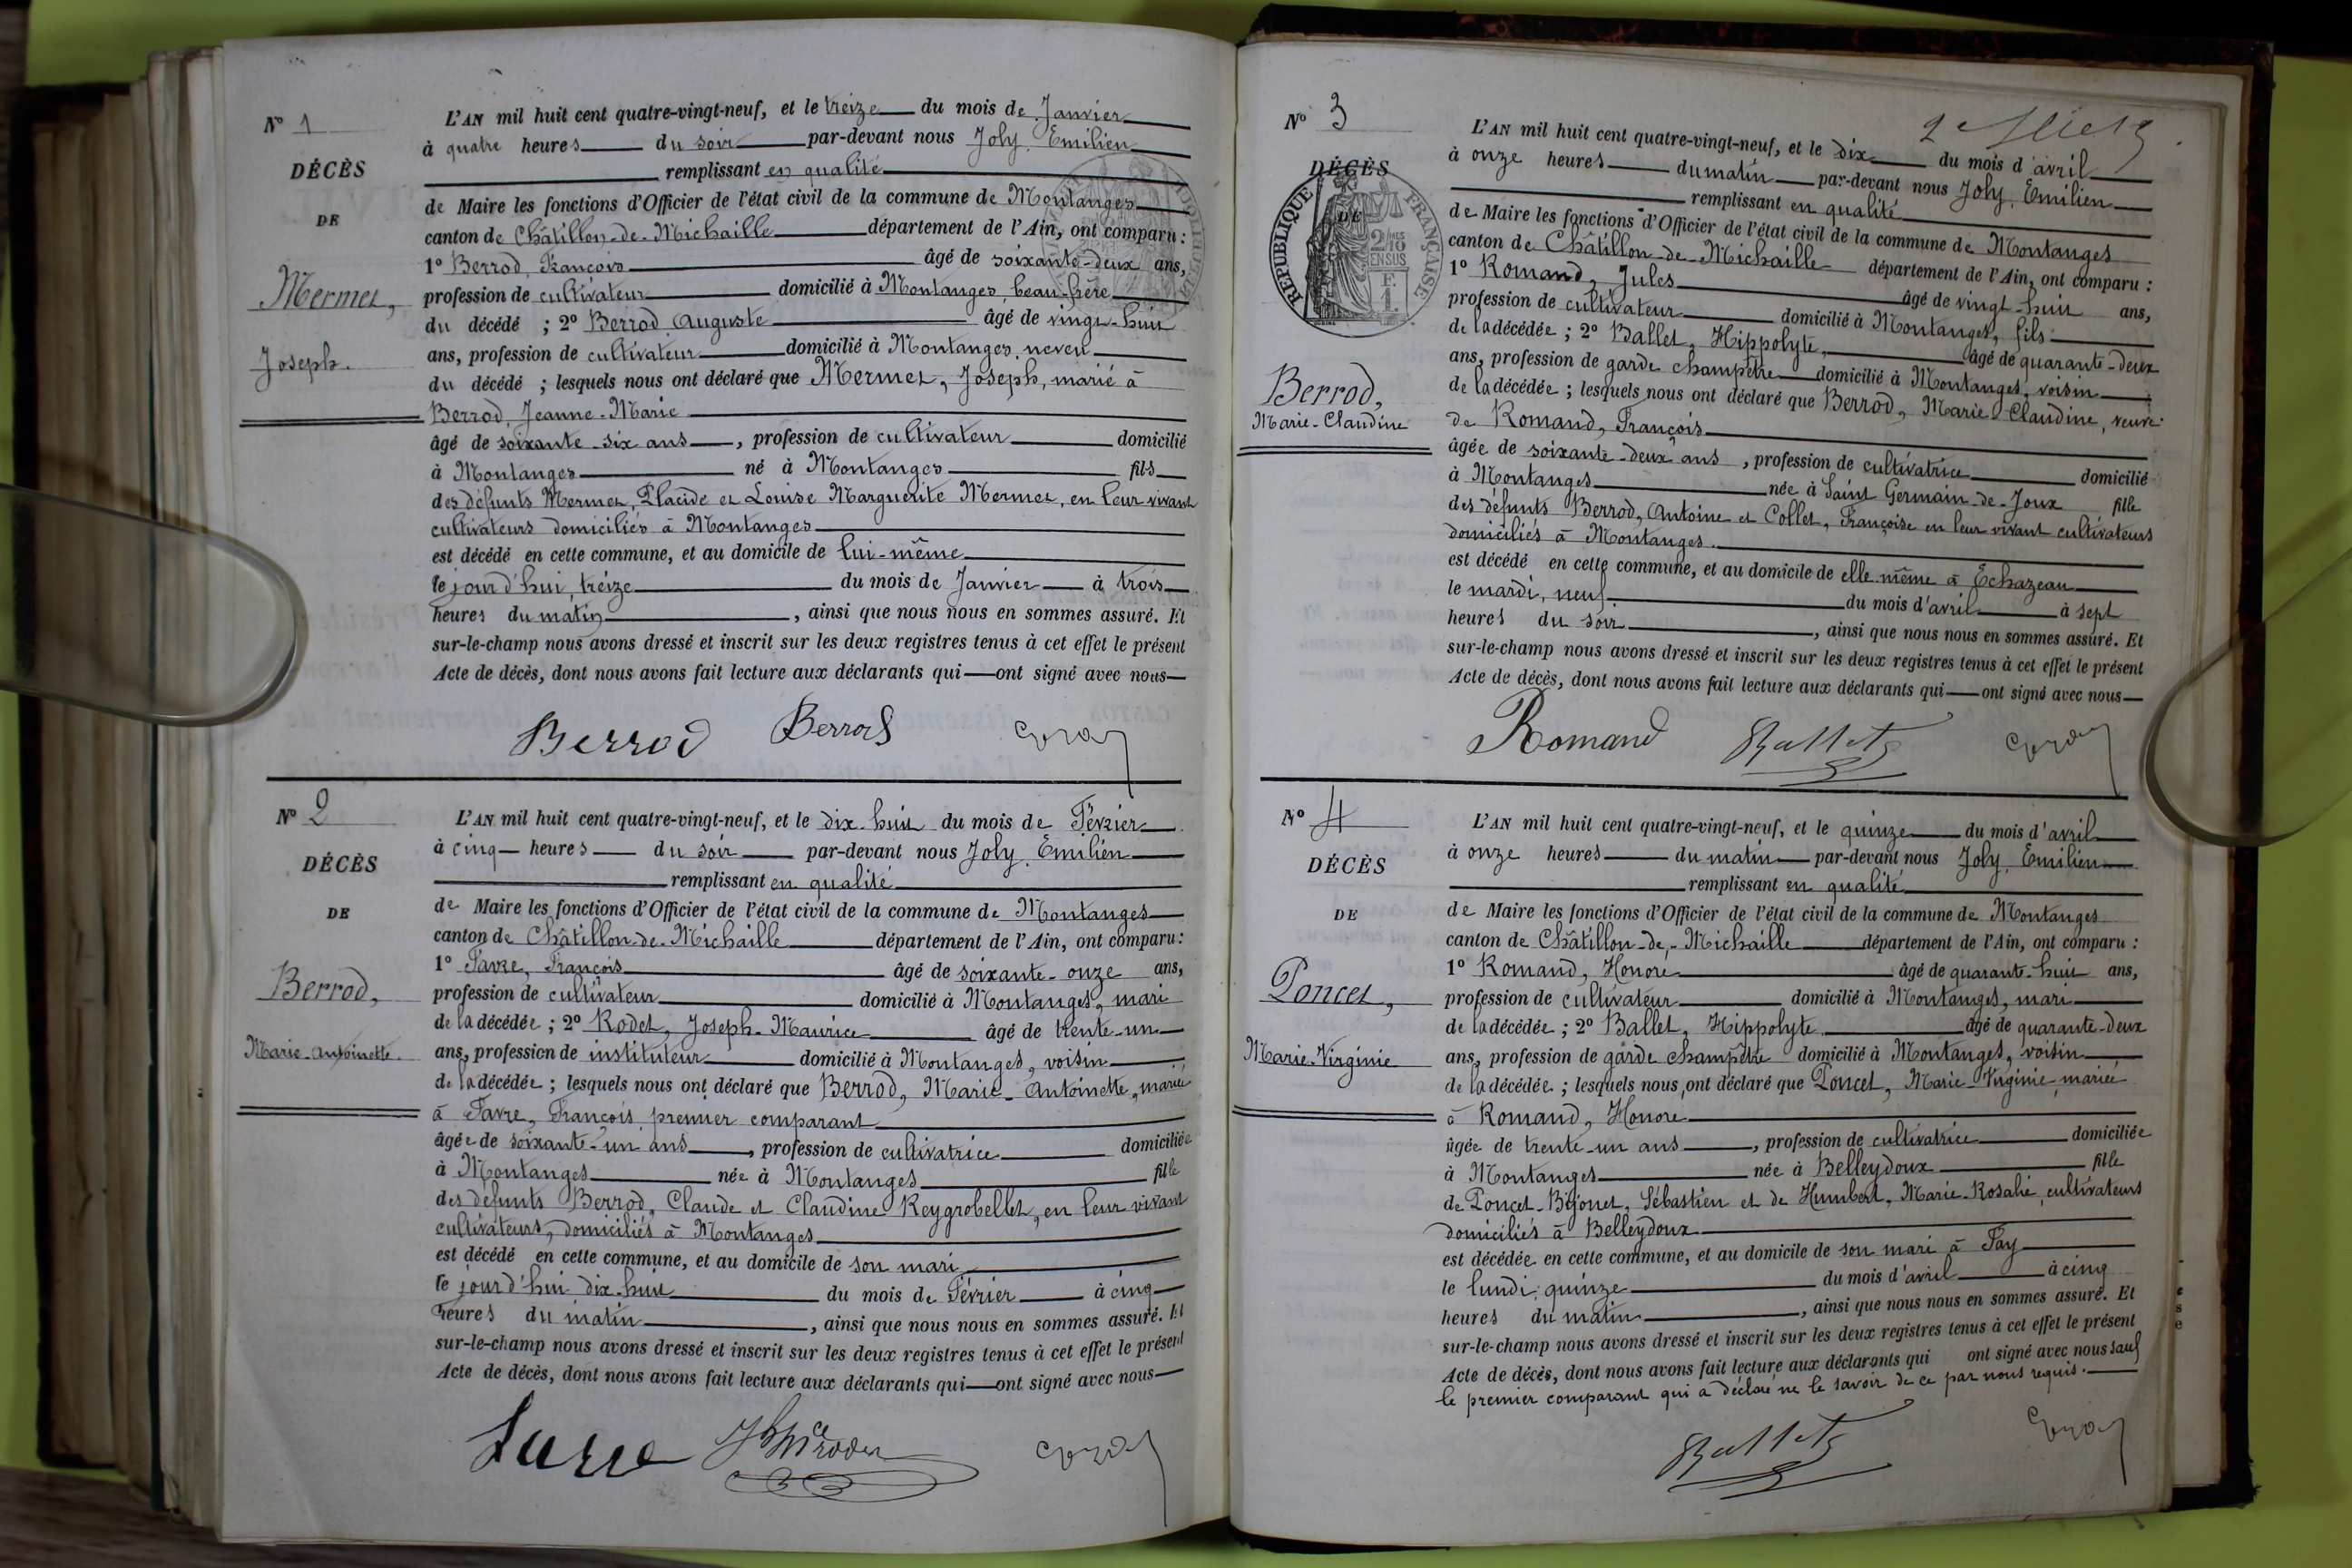 N° 1
DÉCÈS
DE
Mermet,
Joseph.
L'AN mil huit cent quatre-vingt-neuf, et le treize du mois de Janvier
à quatre heures du soir par-devant nous Joly, Emilien
remplissant en qualité
de Maire les fonctions d'Officier de l'état civil de la commune de Montanges
canton de Châtillon-de-Michaille département de l'Ain, ont comparu :
1° Berrod, François âgé de soixante-deux ans,
profession de cultivateur domicilié à Montanges, beau-frère
du décédé ; 2° Berrod Auguste âgé de vingt-huit
ans, profession de cultivateur domicilié à Montanges, neveu
du décédé ; lesquels nous ont déclaré que Mermet, Joseph, marié à
Berrod, Jeanne-Marie
âgé de soixante-six ans, profession de cultivateur domicilié
à Montanges né à Montanges fils
des défunts Mermet, Placide et Louise Marguerite Mermet, en leur vivant
cultivateurs domiciliés à Montanges
est décédé en cette commune, et au domicile de lui-même
le jourd'hui, treize du mois de Janvier à trois
heures du matin, ainsi que nous nous en sommes assuré. Et
sur-le-champ nous avons dressé et inscrit sur les deux registres tenus à cet effet le présent
Acte de décès, dont nous avons fait lecture aux déclarants qui ont signé avec nous
Berrod Berrod
N° 2
DÉCÈS
DE
Berrod,
Marie-Antoinette.
L'AN mil huit cent quatre-vingt-neuf, et le dix-huit du mois de Février
à cinq heures du soir par-devant nous Joly, Emilien
remplissant en qualité
de Maire les fonctions d'Officier de l'état civil de la commune de Montanges
canton de Châtillon-de-Michaille département de l'Ain, ont comparu :
1° Favre, François âgé de soixante-onze ans,
profession de cultivateur domicilié à Montanges, mari
de la décédée ; 2° Rodet, Joseph-Maurice âgé de trente-un
ans, profession de instituteur domicilié à Montanges, voisin
de la décédée ; lesquels nous ont déclaré que Berrod, Marie-Antoinette, mariée
à Favre, François, premier comparant
âgée de soixante-un ans, profession de cultivatrice domiciliée
à Montanges née à Montanges fille
des défunts Berrod, Claude et Claudine Reygrobellet, en leur vivant
cultivateurs, domiciliés à Montanges
est décédé en cette commune, et au domicile de son mari
le jourd'hui dix-huit du mois de Février à cinq
heures du matin, ainsi que nous nous en sommes assuré. Et
sur-le-champ nous avons dressé et inscrit sur les deux registres tenus à cet effet le présent
Acte de décès, dont nous avons fait lecture aux déclarants qui ont signé avec nous
Favre
N° 3
DÉCÈS
DE
RÉPUBLIQUE FRANÇAISE
Berrod,
Marie-Claudine
L'AN mil huit cent quatre-vingt-neuf, et le dix du mois d'avril
à onze heures du matin par-devant nous Joly, Emilien
remplissant en qualité
de Maire les fonctions d'Officier de l'état civil de la commune de Montanges
canton de Châtillon-de-Michaille département de l'Ain, ont comparu :
1° Romand, Jules âgé de vingt-huit ans,
profession de cultivateur domicilié à Montanges, fils
de la décédée ; 2° Ballet, Hippolyte, âgé de quarante-deux
ans, profession de garde champêtre domicilié à Montanges, voisin
de la décédée ; lesquels nous ont déclaré que Berrod, Marie Claudine, veuve
de Romand, François
âgée de soixante-deux ans, profession de cultivatrice domicilié
à Montanges née à Saint Germain-de-Joux fille
des défunts Berrod, Antoine et Collet, Françoise en leur vivant cultivateurs
domiciliés à Montanges.
est décédé en cette commune, et au domicile de elle même à Echazeau
le mardi, neuf du mois d'avril à sept
heures du soir, ainsi que nous nous en sommes assuré. Et
sur-le-champ nous avons dressé et inscrit sur les deux registres tenus à cet effet le présent
Acte de décès, dont nous avons fait lecture aux déclarants qui ont signé avec nous
Romand Ballet
N° 4
DÉCÈS
DE
Poncet,
Marie-Virginie
L'AN mil huit cent quatre-vingt-neuf, et le quinze du mois d'avril
à onze heures du matin par-devant nous Joly, Emilien
remplissant en qualité
de Maire les fonctions d'Officier de l'état civil de la commune de Montanges
canton de Châtillon-de-Michaille département de l'Ain, ont comparu :
1° Romand, Honoré âgé de quarante-huit ans,
profession de cultivateur domicilié à Montanges, mari
de la décédée ; 2° Ballet, Hippolyte âgé de quarante-deux
ans, profession de garde champêtre domicilié à Montanges, voisin
de la décédée ; lesquels nous ont déclaré que Poncet, Marie-Virginie, mariée
à Romand, Honoré
âgée de trente-un ans, profession de cultivatrice domiciliée
à Montanges née à Belleydoux fille
de Poncet-Bijonet, Sébastien et de Humbert, Marie-Rosalie, cultivateurs
domiciliés à Belleydoux
est décédée en cette commune, et au domicile de son mari à Fay
le lundi, quinze du mois d'avril à cinq
heures du matin, ainsi que nous nous en sommes assuré. Et
sur-le-champ nous avons dressé et inscrit sur les deux registres tenus à cet effet le présent
Acte de décès, dont nous avons fait lecture aux déclarants qui ont signé avec nous sauf
le premier comparant qui a déclaré ne le savoir de ce par nous requis.
Ballet